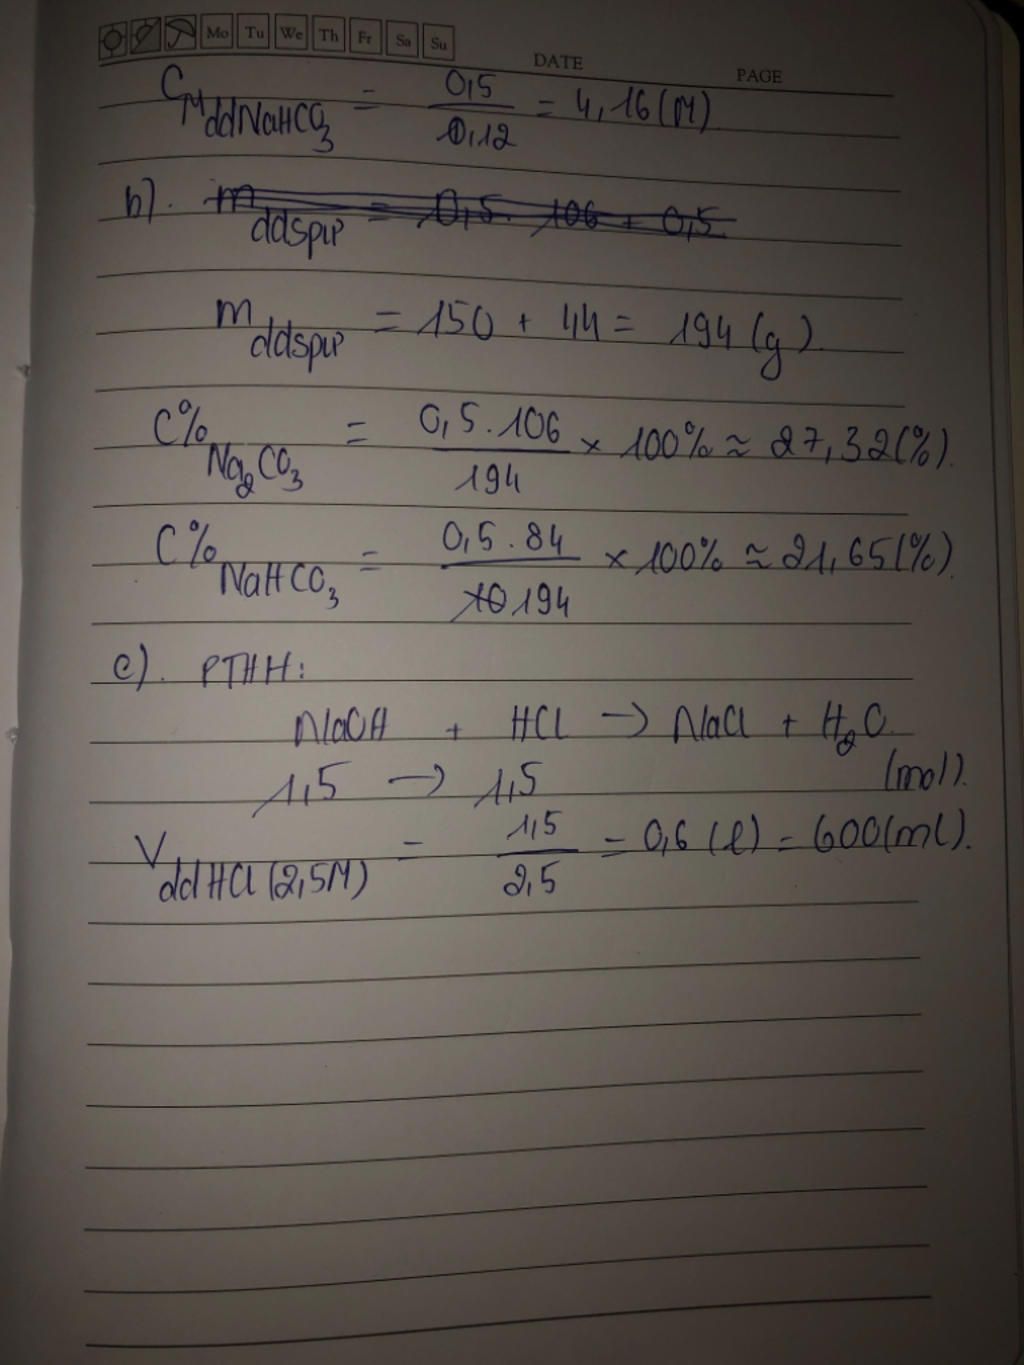 Mo Tu We Th Fr Sa Su
DATE PAGE
CM ddNaHCO3 = 0,5/0,12 = 4,16 (M)
b). m ddspư = 0,5. 106 + 0,5
m ddspư = 150 + 44 = 194 (g).
C% Na2CO3 = 0,5.106/194 x 100% ≈ 27,32 (%).
C% NaHCO3 = 0,5.84/194 x 100% ≈ 21,65 (%).
c). PTHH:
NaOH + HCl -> NaCl + H2O
1,5 -> 1,5 (mol).
V ddHCl (2,5M) = 1,5/2,5 = 0,6 (l) = 600 (ml).